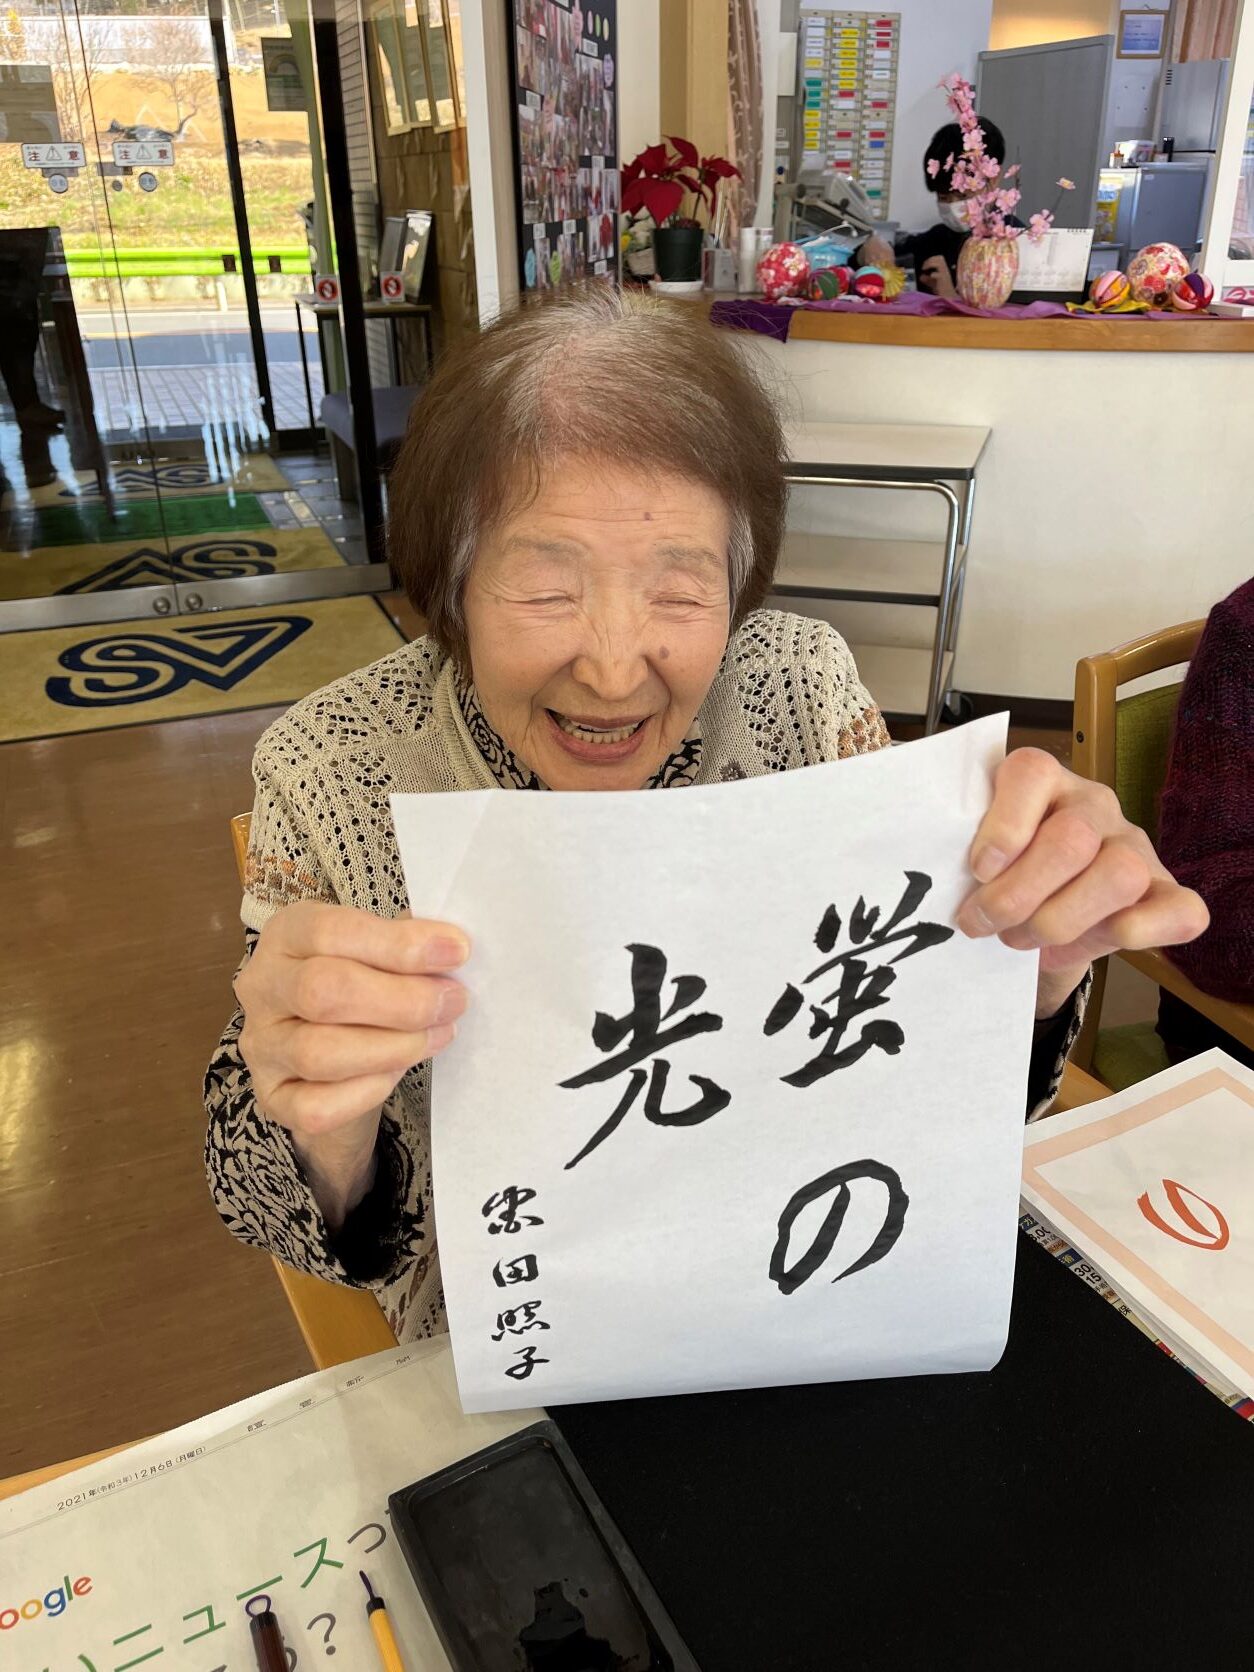 注意
注意
蛍の
光
田照子
2021年(令和3年)12月6日(月曜日)
読売新聞
oogle
いニュースって
?